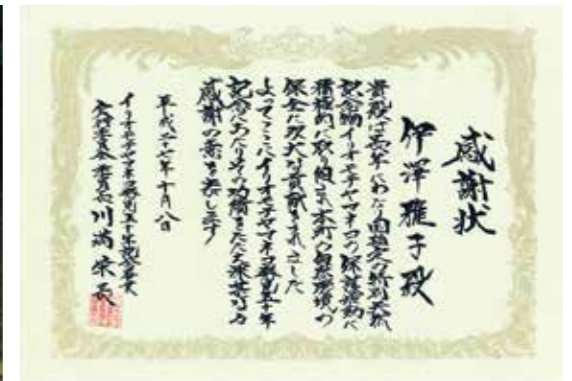 感謝状
伊澤雅子殿
貴殿は長年にわたり国指定の特別天然
記念物イリオモテヤマネコの保護活動に
積極的に取り組まれ本町の自然環境の
保全に多大な貢献をされました
よってここにイリオモテヤマネコ発見五十年
記念にあたりその功績をたたえ深甚なる
感謝の意を表します
平成二十七年十月八日
イリオモテヤマネコ発見五十年記念事業
実行委員会 委員長 川満栄長